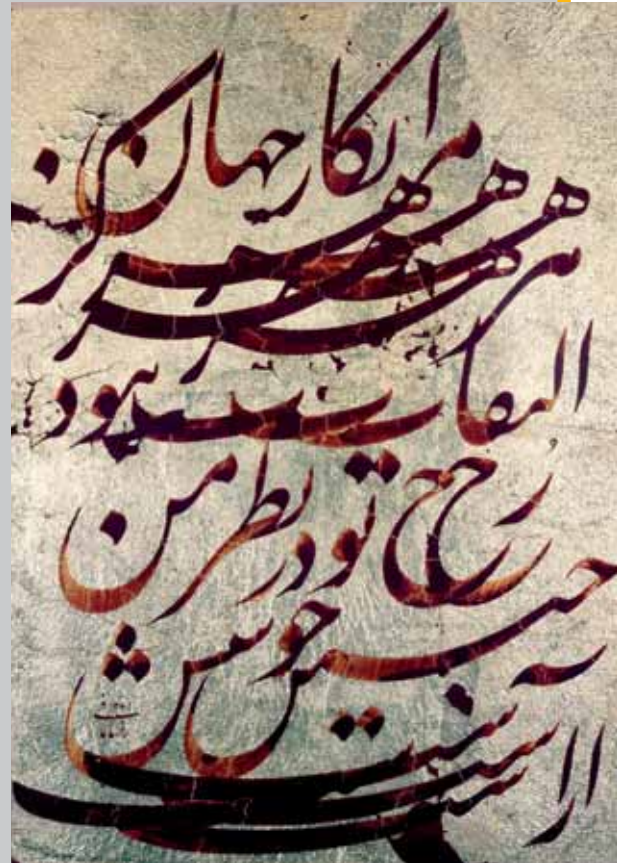 مرا بکار جهان
هرگز
التفات نبود
رخ تو در نظر من
چنین خوشش
آراست